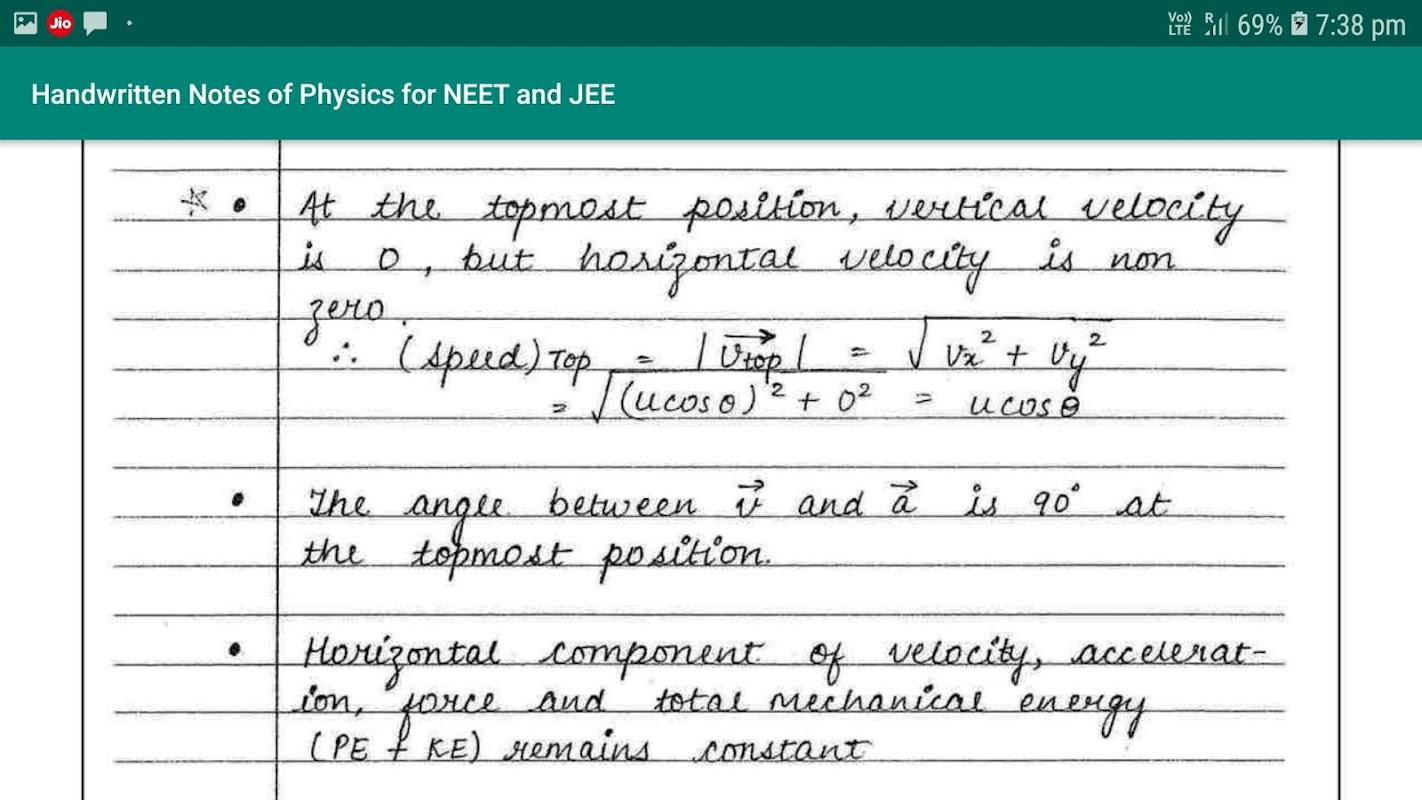 Jio Vo)) LTE R 69% 7:38 pm
Handwritten Notes of Physics for NEET and JEE
☆ • At the topmost position, vertical velocity
is 0, but horizontal velocity is non
zero.
∴ (speed) Top = |v⃗top| = √(vx² + vy²)
= √((ucosθ)² + 0²) = ucosθ
• The angle between v⃗ and a⃗ is 90° at
the topmost position.
• Horizontal component of velocity, accelerat-
ion, force and total mechanical energy
(PE + KE) remains constant